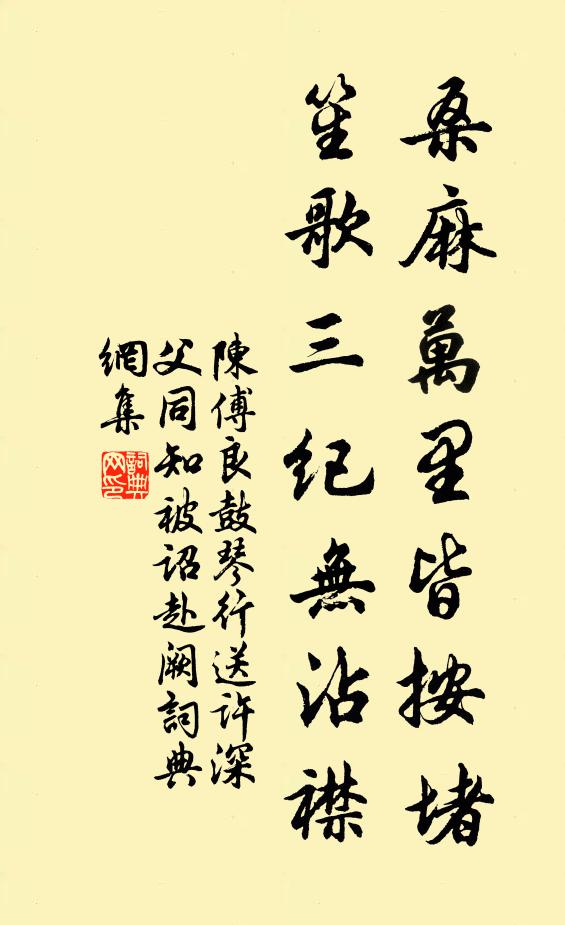 桑麻萬里皆按堵
笙歌三紀無沾襟
陳傅良鼓琴行送許深
父同知被詔赴闕詞典
網集
詞典
网印